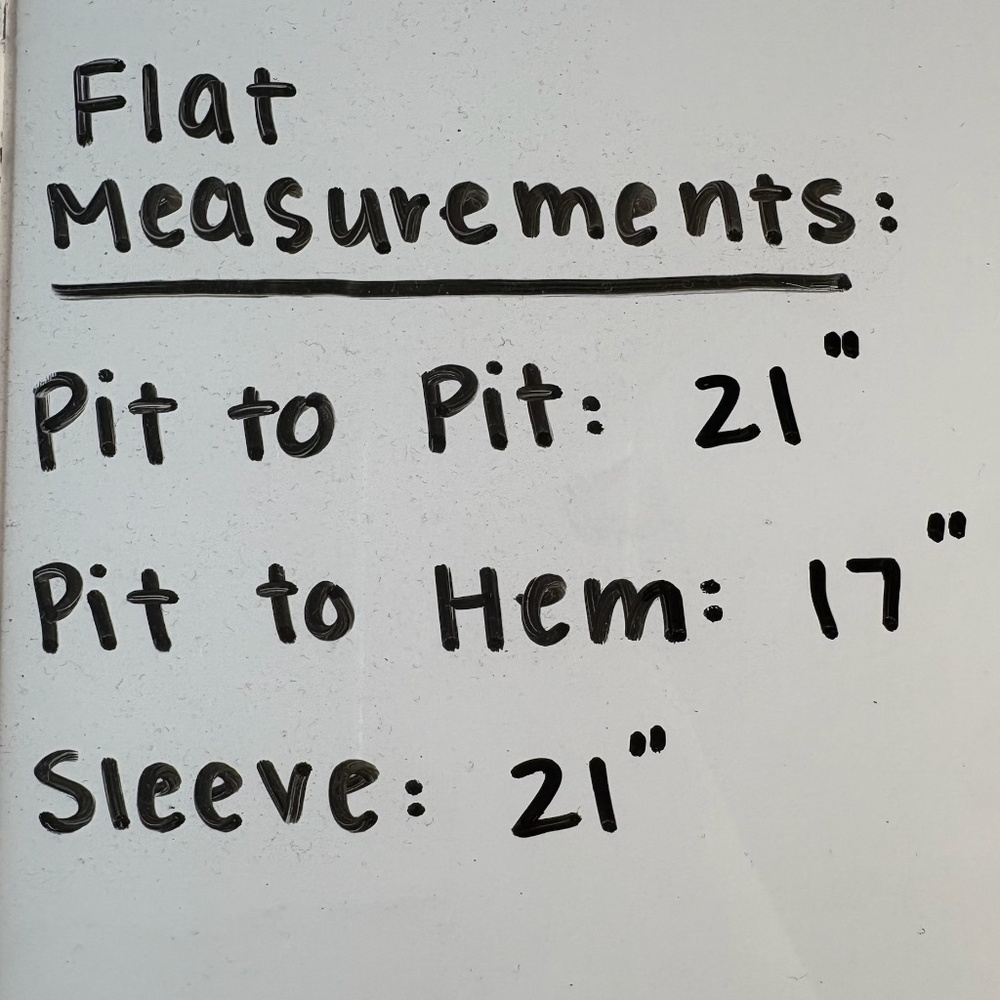 Flat
Measurements:
Pit to Pit: 21"
Pit to Hem: 17"
Sleeve: 21"